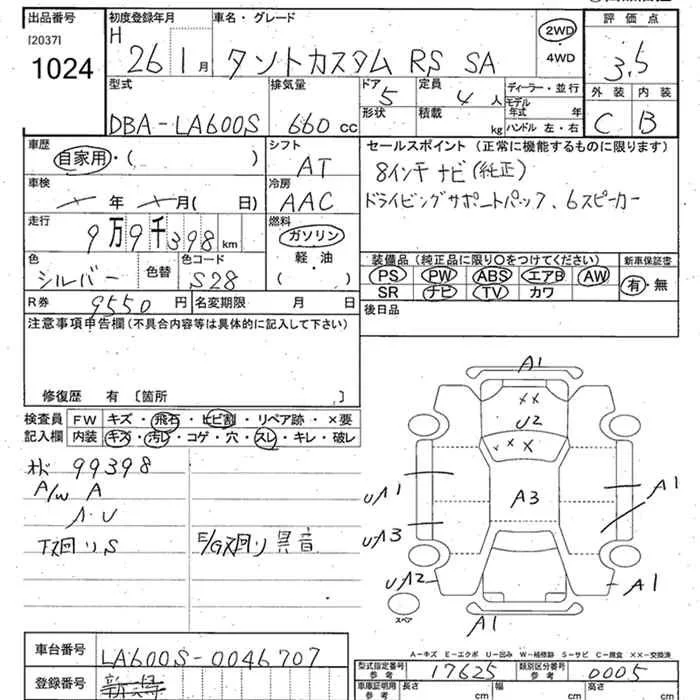 出品番号
[2037]
1024
初度登録年月
H 26 1月
車名・グレード
タントカスタム RS SA
2WD
・
4WD
評価点
3.5
外装 内装
C B
型式
DBA-LA600S
排気量
660 cc
ドア 5
形状
定員 4 人
積載 kg
ディーラー・並行
モデル年式 年
ハンドル 左・右
車歴
自家用・( )
シフト
AT
車検
年 月( 日)
冷房
AAC
走行
9万9千398 km
燃料
ガソリン
軽・油
( )
色
シルバー
色替
色コード
S28
R券 9550 円
名変期限 月 日
セールスポイント(正常に機能するものに限ります)
8インチ ナビ(純正)
ドライビングサポートパック、6スピーカー
装備品(純正品に限り○をつけてください)
新車保証書
PS PW ABS エアB AW
SR ナビ TV カワ
有・無
後日品
注意事項申告欄(不具合内容等は具体的に記入して下さい)
修復歴 有 〔箇所 〕
検査員記入欄
FW キズ・飛石・ヒビ割・リペア跡・×要
内装 キズ・汚レ・コゲ・穴・スレ・キレ・破レ
オド 99398
A/W A
下廻りS
E/G廻り異音
A1
××
U2
××X
A3
A1
A1
A1
A1
スペア
A-キズ E-エクボ U-凹み W-補修跡 S-サビ C-腐食 ××-交換済
車台番号
LA600S-0046707
登録番号
型式指定番号 参考
17625
類別区分番号 参考
0005
車庫証明用 参考
長さ cm
幅 cm
高さ cm